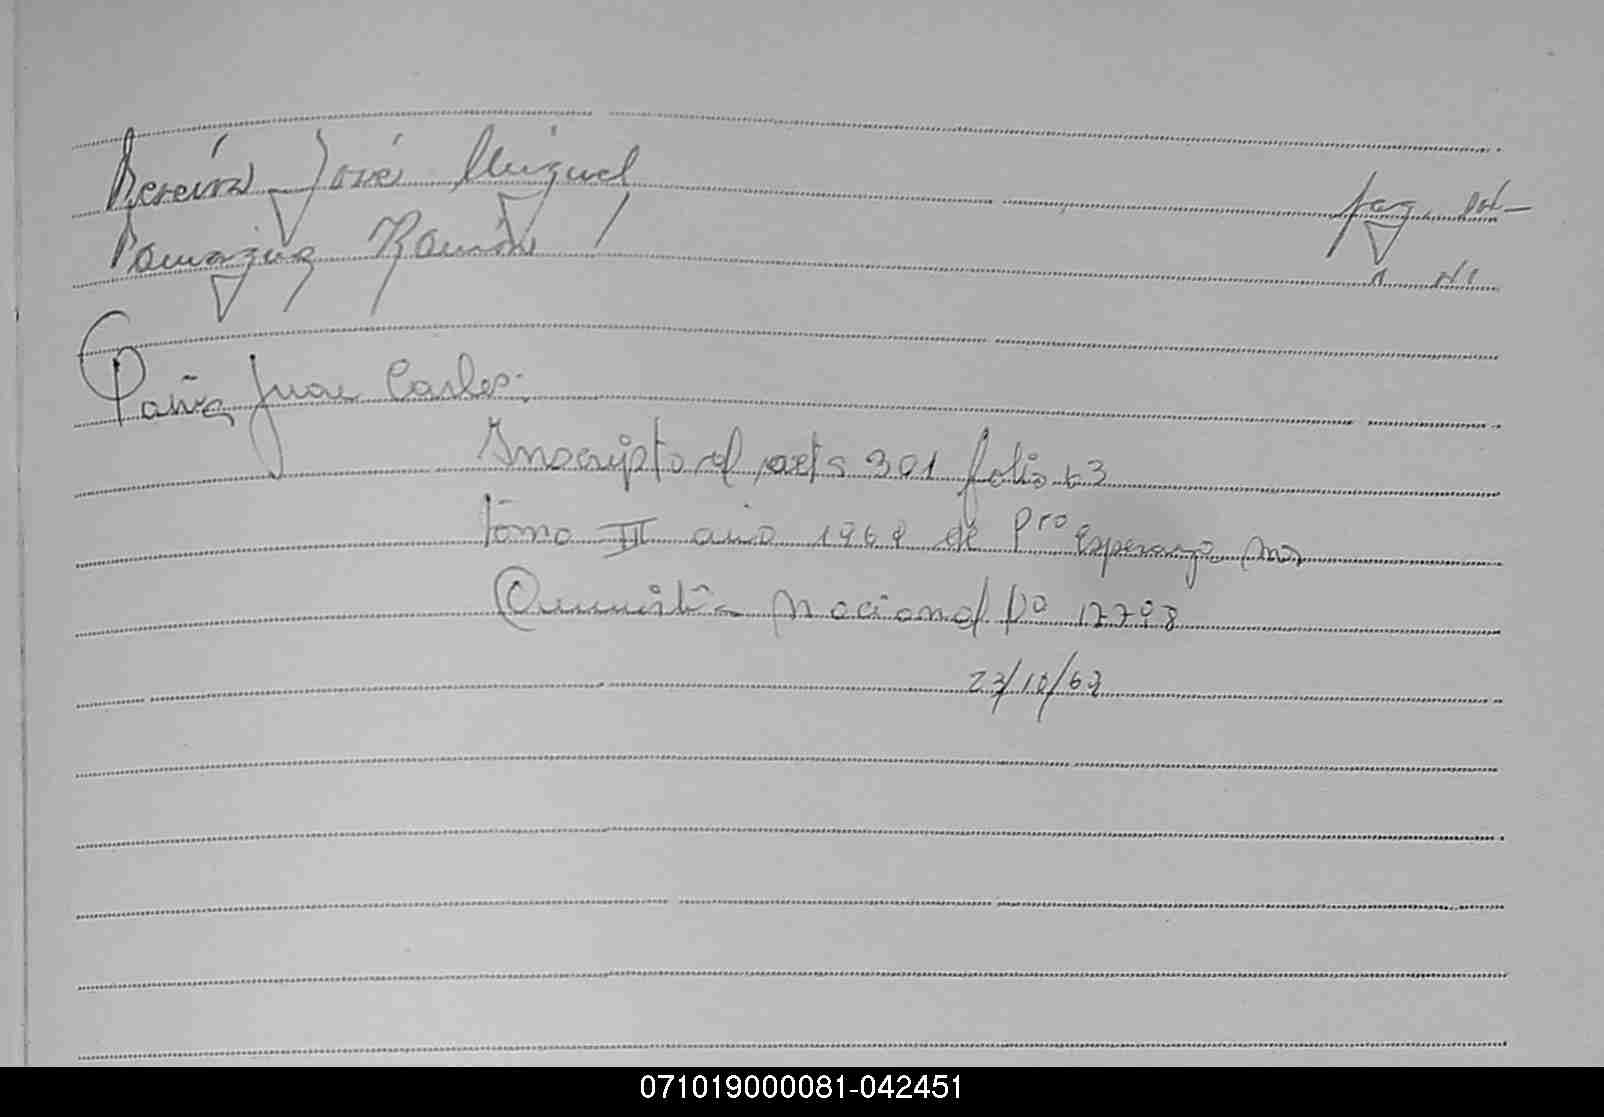 Pereira José Miguel
Ramón
Paiva Juan Carlos:
Inscripto al acta 301 folio 43
tomo III año 1968 de Pto Esperanza Mns
Amnistía Nacional Nº 17798
23/10/68
071019000081-042451